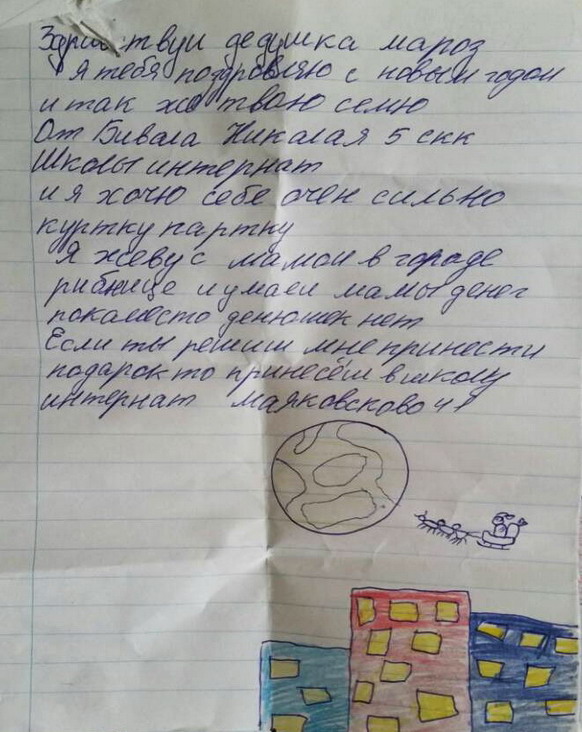 Здравствуи дедушка мароз
я тебя поздровляю с новым годом
и так же тваю семю
От Бивала Николая 5 скк
Школы интернат
и я хочу себе очен сильно
куртку партку
Я жеву с мамои в городе
рибнице и умаеи мамы денег
покаместо денюшек нет
Если ты решиш мне принести
подарок то принесёш в школу
интернат маяковсково 41